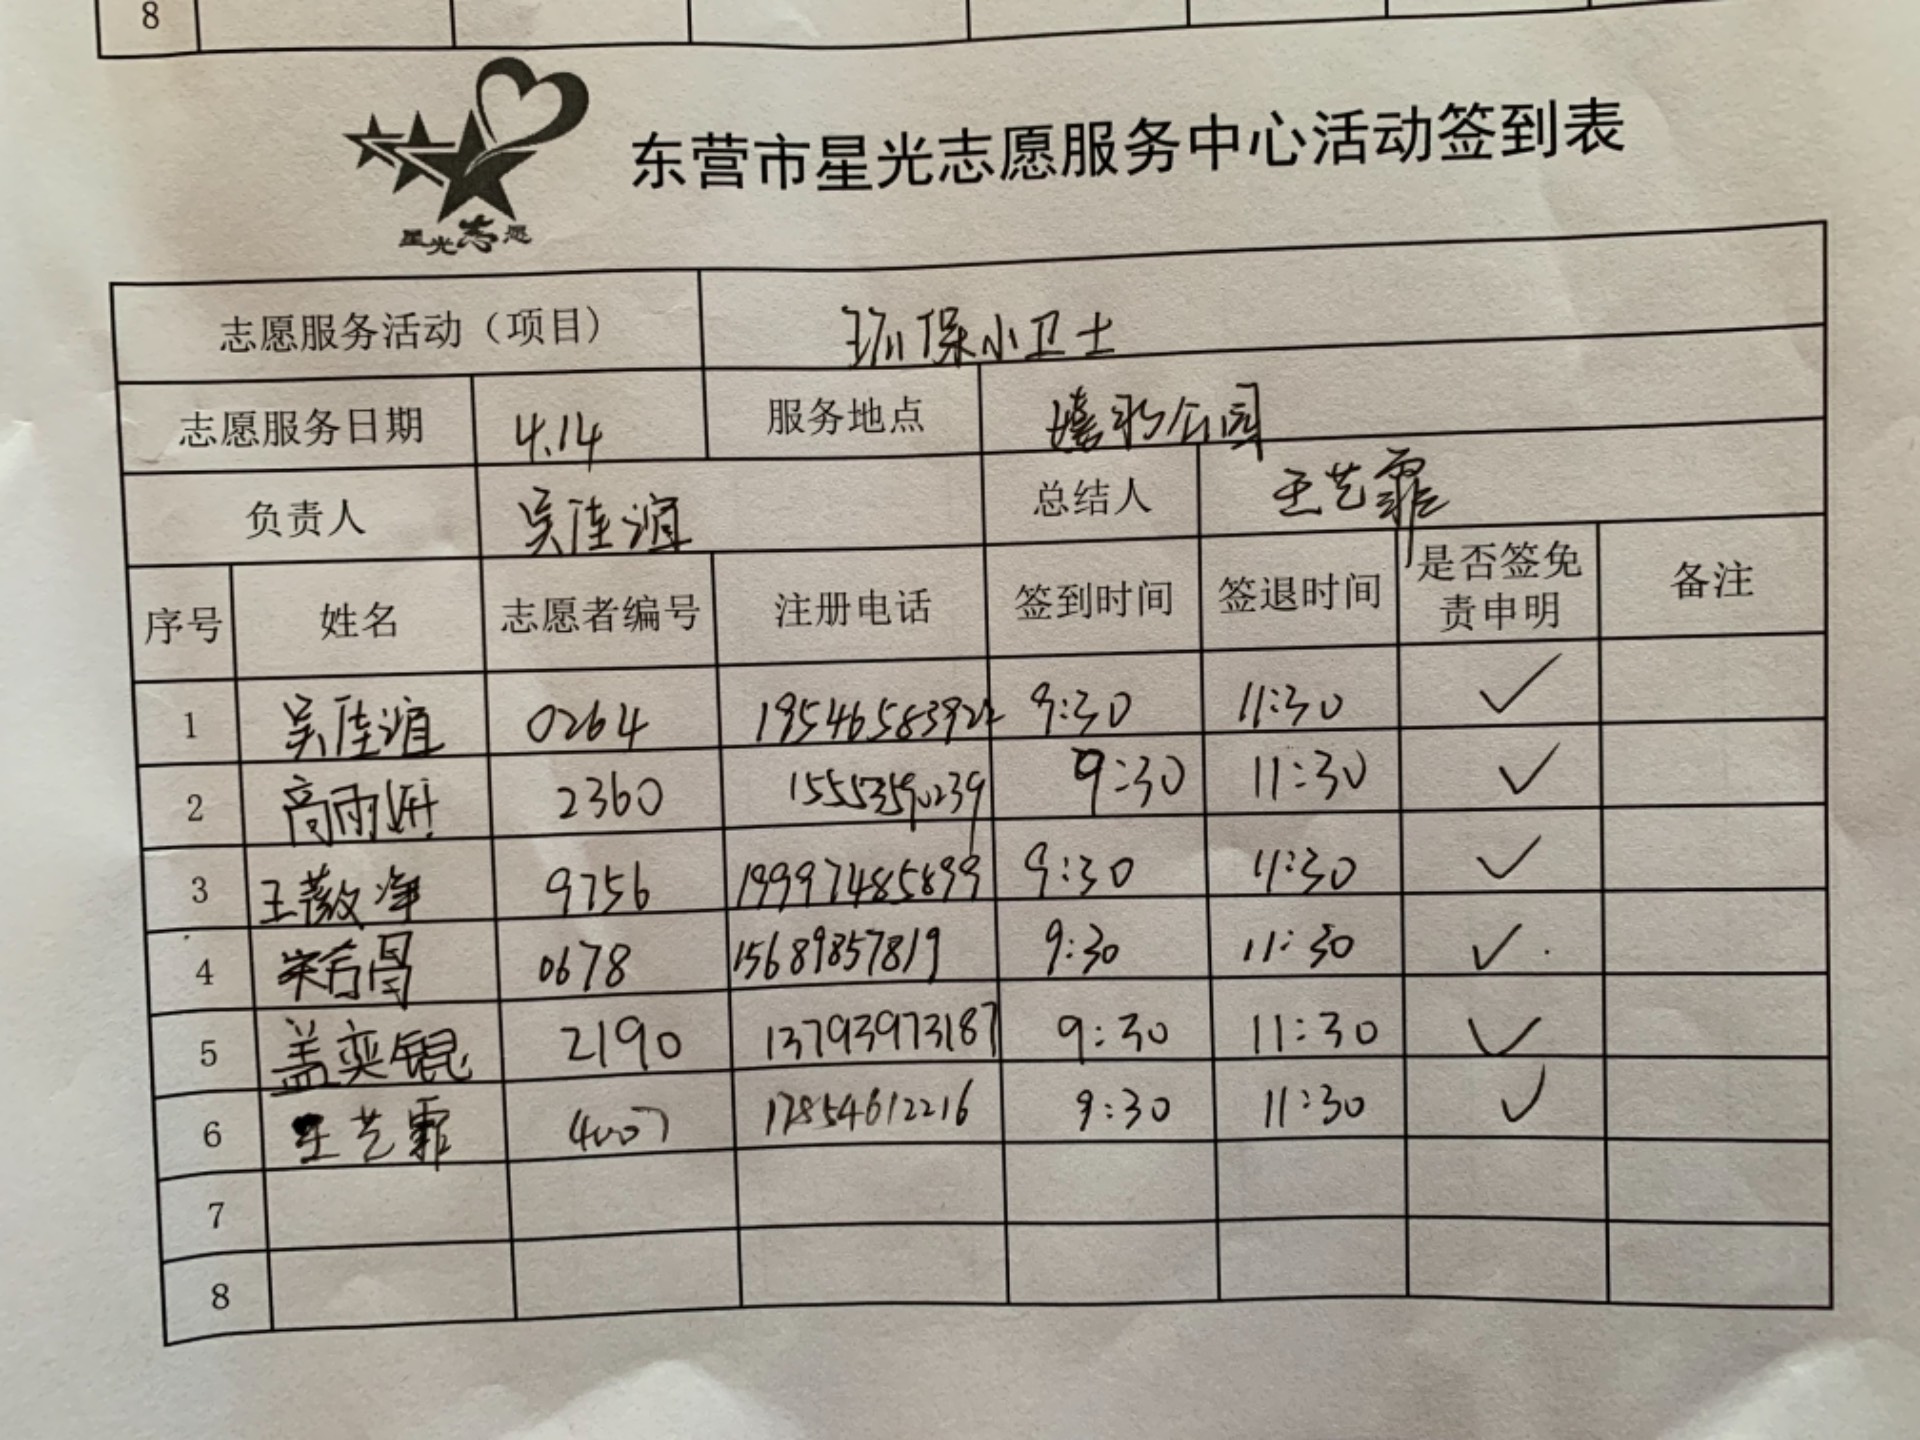 8
星光志愿
东营市星光志愿服务中心活动签到表
志愿服务活动（项目） 环保小卫士
志愿服务日期 4.14 服务地点 嬉水公园
负责人 吴佳谊 总结人 王艺霏
序号 姓名 志愿者编号 注册电话 签到时间 签退时间 是否签免责申明 备注
1 吴佳谊 0264 9:30 11:30 ✓
2 高雨妍 2360 15553590239 9:30 11:30 ✓
3 王薇净 9756 19997485899 9:30 11:30 ✓
4 0678 15689857819 9:30 11:30 ✓
5 盖奕锟 2190 13793973187 9:30 11:30 ✓
6 王艺霏 4007 17854612216 9:30 11:30 ✓
7
8